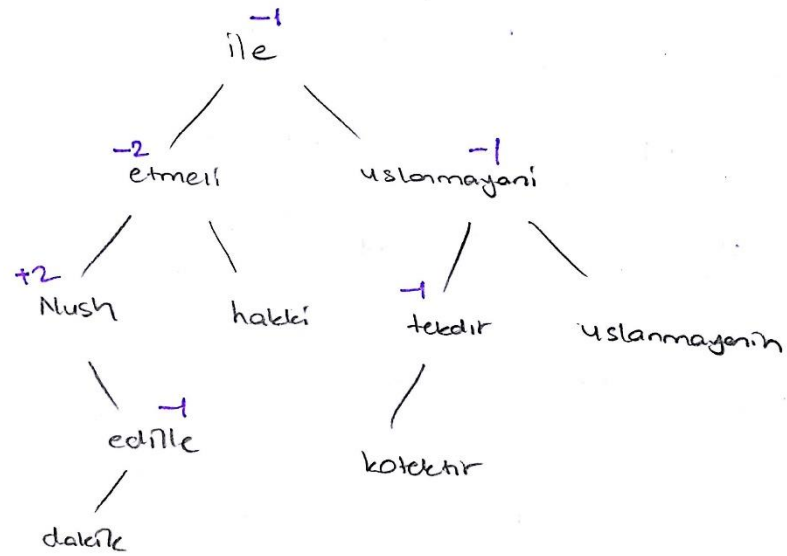 -1
ile
-2 -1
etmeli uslanmayani
+2 -1
Nush hakki tekdir uslanmayanin
-1
edille kotektir
dakik